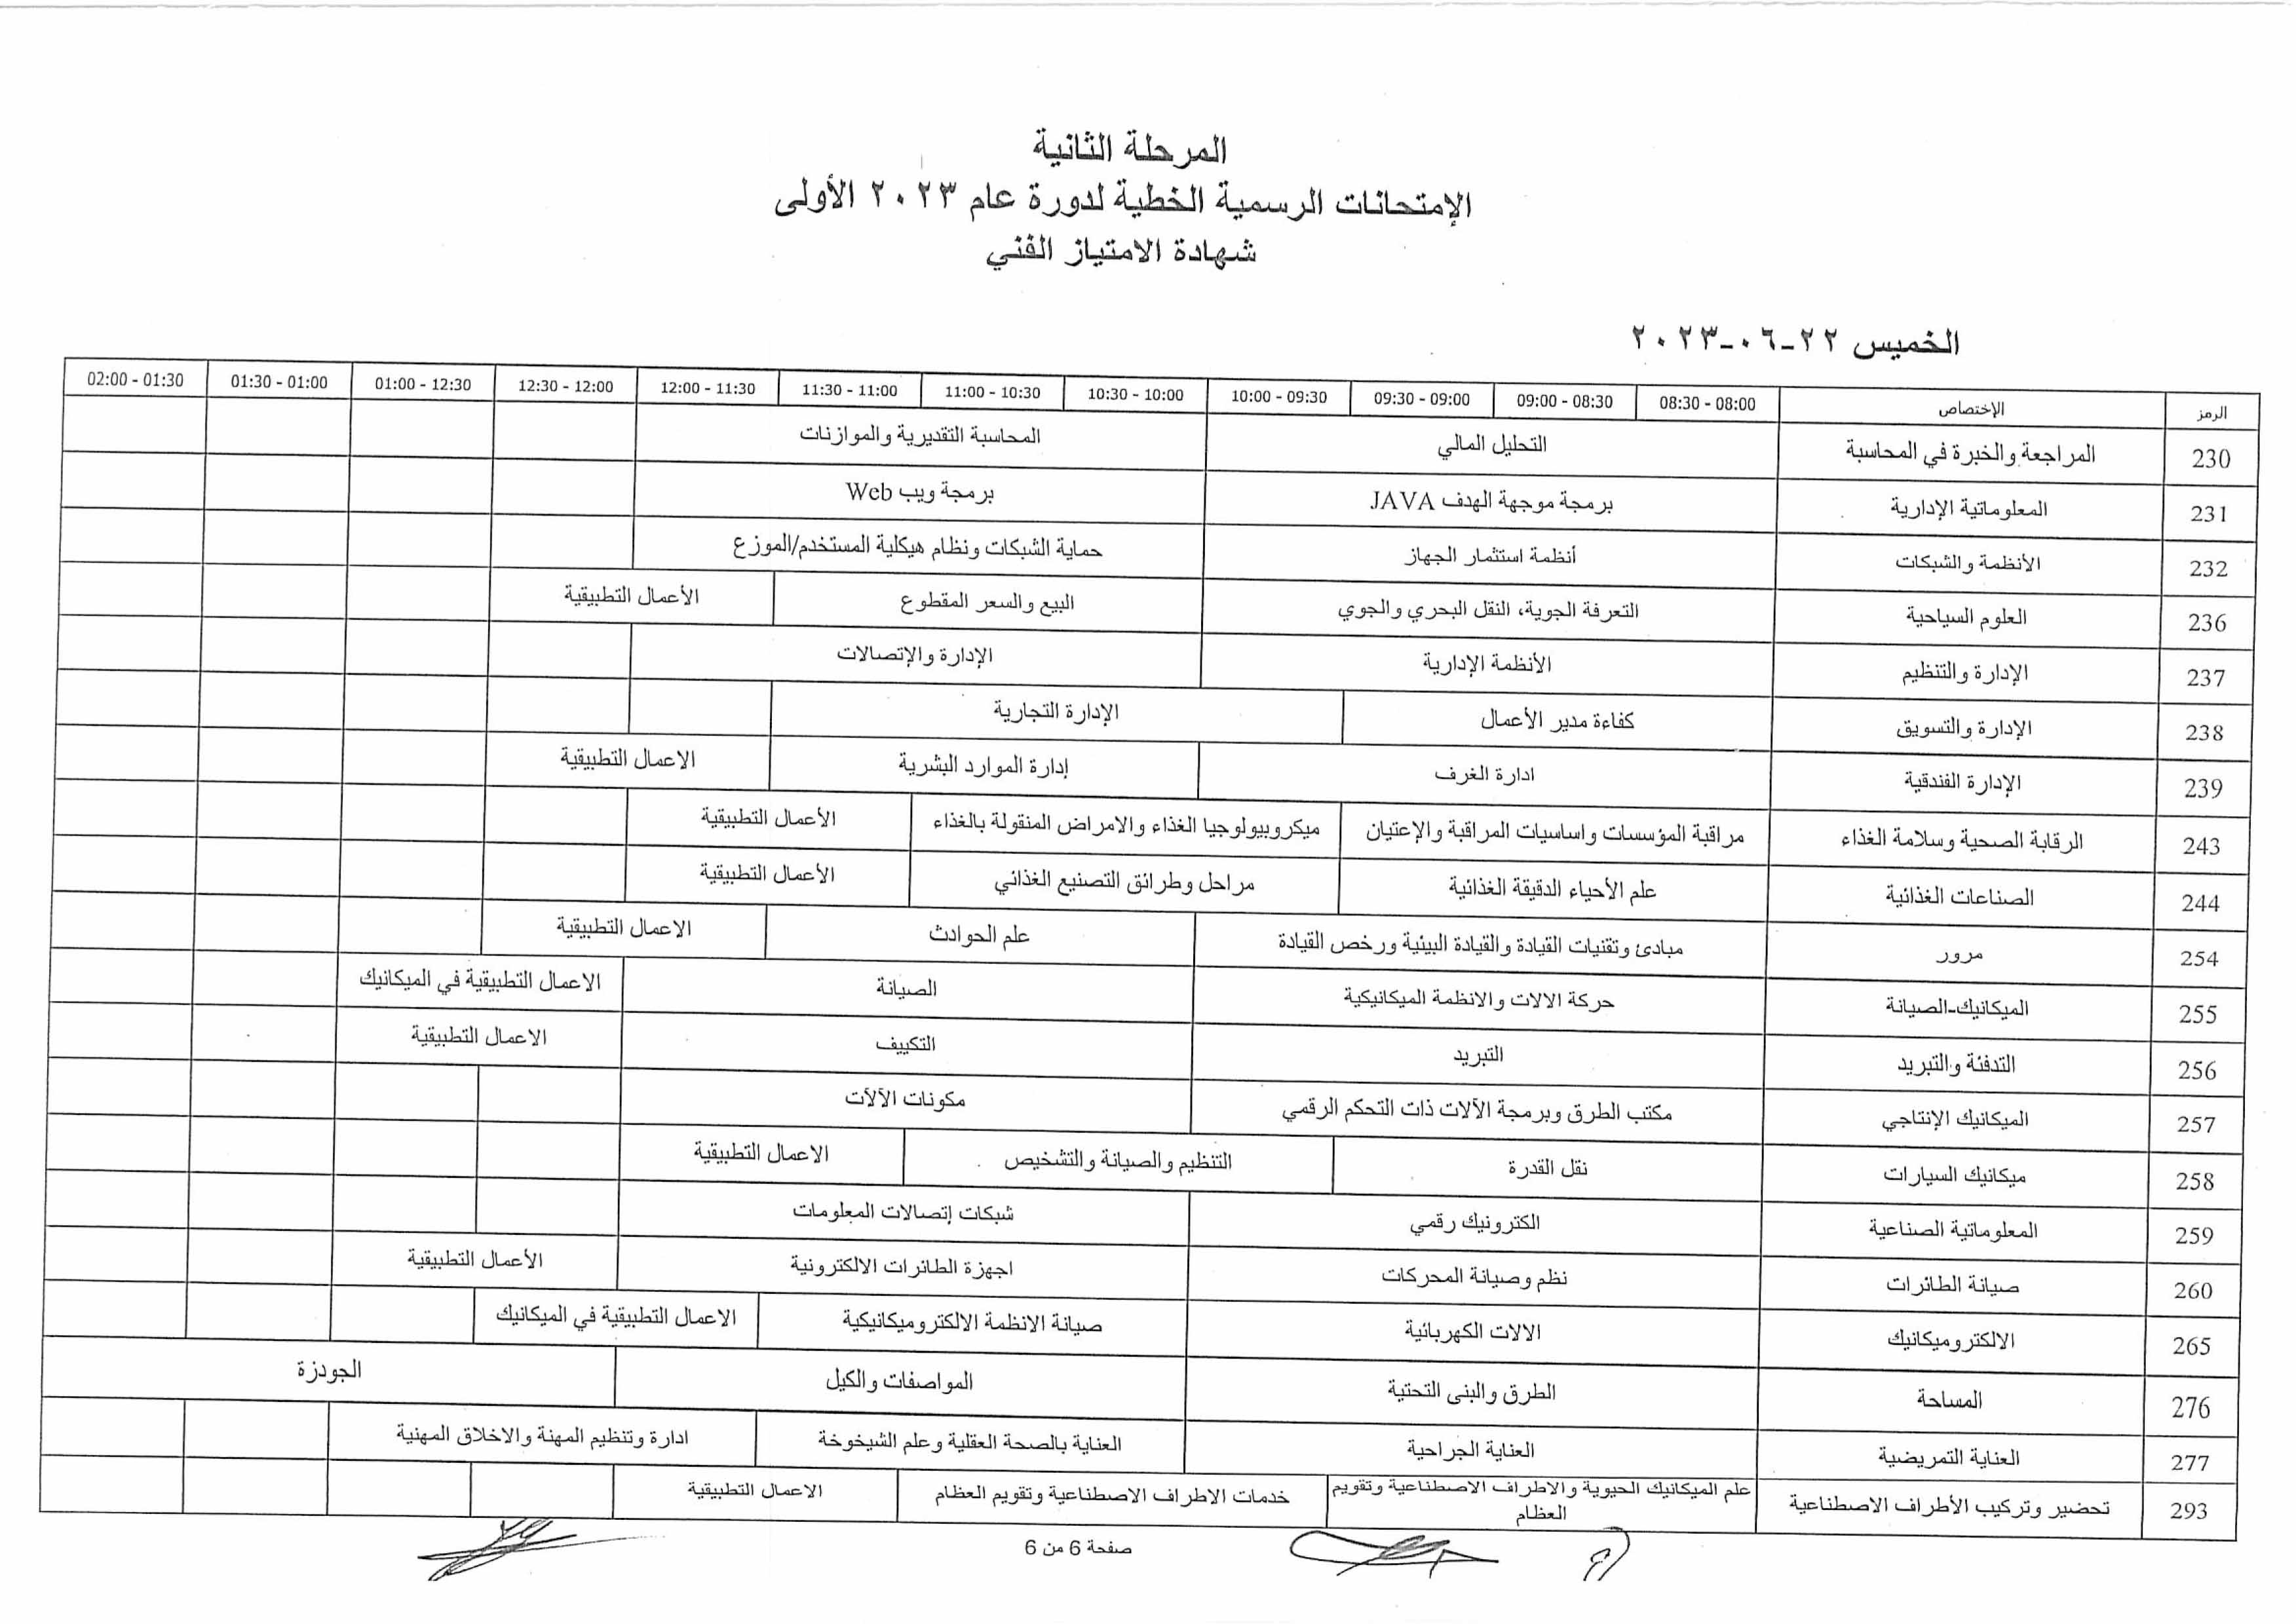 المرحلة الثانية
الإمتحانات الرسمية الخطية لدورة عام ٢٠٢٣ الأولى
شهادة الامتياز الفني
الخميس ٢٢-٠٦-٢٠٢٣
الرمز الإختصاص 08:00 - 08:30 08:30 - 09:00 09:00 - 09:30 09:30 - 10:00 10:00 - 10:30 10:30 - 11:00 11:00 - 11:30 11:30 - 12:00 12:00 - 12:30 12:30 - 01:00 01:00 - 01:30 01:30 - 02:00
230 المراجعة والخبرة في المحاسبة التحليل المالي المحاسبة التقديرية والموازنات
231 المعلوماتية الإدارية برمجة موجهة الهدف JAVA برمجة ويب Web
232 الأنظمة والشبكات أنظمة استثمار الجهاز حماية الشبكات ونظام هيكلية المستخدم/الموزع
236 العلوم السياحية التعرفة الجوية، النقل البحري والجوي البيع والسعر المقطوع الأعمال التطبيقية
237 الإدارة والتنظيم الأنظمة الإدارية الإدارة والإتصالات
238 الإدارة والتسويق كفاءة مدير الأعمال الإدارة التجارية
239 الإدارة الفندقية ادارة الغرف إدارة الموارد البشرية الاعمال التطبيقية
243 الرقابة الصحية وسلامة الغذاء مراقبة المؤسسات واساسيات المراقبة والإعتيان ميكروبيولوجيا الغذاء والامراض المنقولة بالغذاء الأعمال التطبيقية
244 الصناعات الغذائية علم الأحياء الدقيقة الغذائية مراحل وطرائق التصنيع الغذائي الأعمال التطبيقية
254 مرور مبادئ وتقنيات القيادة والقيادة البيئية ورخص القيادة علم الحوادث الاعمال التطبيقية
255 الميكانيك-الصيانة حركة الالات والانظمة الميكانيكية الصيانة الاعمال التطبيقية في الميكانيك
256 التدفئة والتبريد التبريد التكييف الاعمال التطبيقية
257 الميكانيك الإنتاجي مكتب الطرق وبرمجة الآلات ذات التحكم الرقمي مكونات الآلات
258 ميكانيك السيارات نقل القدرة التنظيم والصيانة والتشخيص الاعمال التطبيقية
259 المعلوماتية الصناعية الكترونيك رقمي شبكات إتصالات المعلومات
260 صيانة الطائرات نظم وصيانة المحركات اجهزة الطائرات الالكترونية الأعمال التطبيقية
265 الالكتروميكانيك الالات الكهربائية صيانة الانظمة الالكتروميكانيكية الاعمال التطبيقية في الميكانيك
276 المساحة الطرق والبنى التحتية المواصفات والكيل الجودزة
277 العناية التمريضية العناية الجراحية العناية بالصحة العقلية وعلم الشيخوخة ادارة وتنظيم المهنة والاخلاق المهنية
293 تحضير وتركيب الأطراف الاصطناعية علم الميكانيك الحيوية والاطراف الاصطناعية وتقويم العظام خدمات الاطراف الاصطناعية وتقويم العظام الاعمال التطبيقية
صفحة 6 من 6